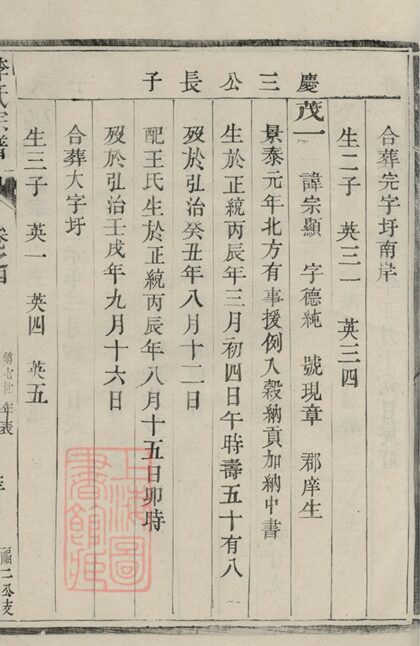 慶三公長子
合葬完字圩南岸
生二子 英三一 英三四
茂一 諱宗顯 字德純 號現章 郡庠生
景泰元年北方有事援例入穀納貢加納中書
生於正統丙辰年三月初四日午時壽五十有八
歿於弘治癸丑年八月十二日
配王氏生於正統丙辰年八月十五日卯時
歿於弘治壬戌年九月十六日
合葬大字圩
生三子 英一 英四 英五
李氏宗譜
年表
福二公支
上海圖書館藏